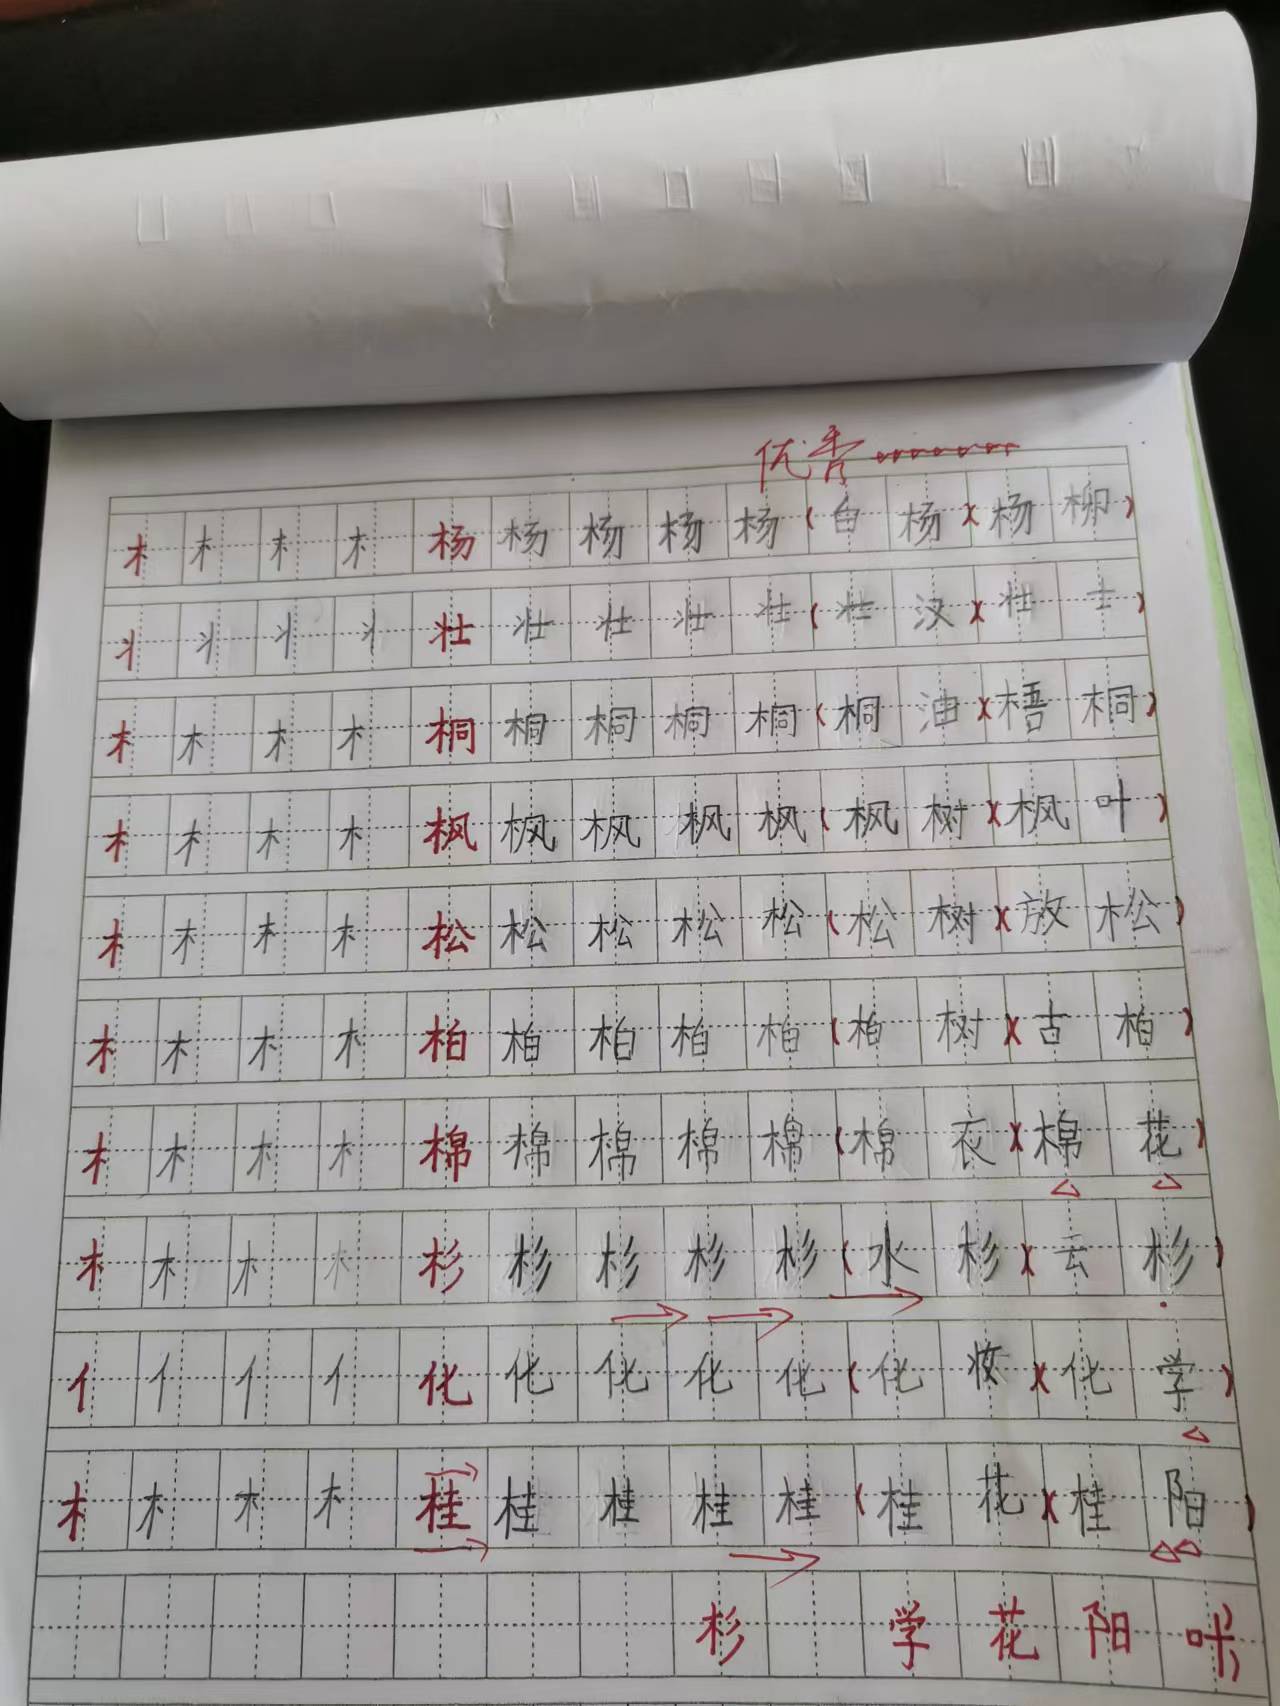 优秀
木 木 木 木 杨 杨 杨 杨 杨 (白 杨)(杨 柳)
丬 丬 丬 丬 壮 壮 壮 壮 壮 (壮 汉)(壮 士)
木 木 木 木 桐 桐 桐 桐 桐 (桐 油)(梧 桐)
木 木 木 木 枫 枫 枫 枫 枫 (枫 树)(枫 叶)
木 木 木 木 松 松 松 松 松 (松 树)(放 松)
木 木 木 木 柏 柏 柏 柏 柏 (柏 树)(古 柏)
木 木 木 木 棉 棉 棉 棉 棉 (棉 衣)(棉 花)
木 木 木 木 杉 杉 杉 杉 杉 (水 杉)(云 杉)
亻 亻 亻 亻 化 化 化 化 化 (化 妆)(化 学)
木 木 木 木 桂 桂 桂 桂 桂 (桂 花)(桂 阳)
杉 学 花 阳 叶